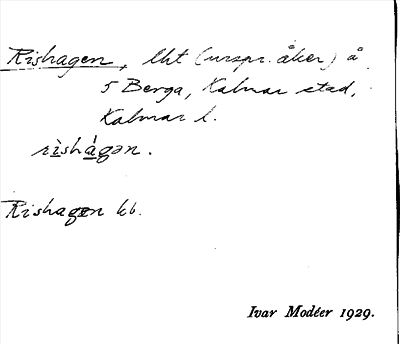 Rishagen, lht (urspr. åker) å
5 Berga, Kalmar stad,
Kalmar l.
rìshágən.
Rishagen kb.
Ivar Modéer 1929.